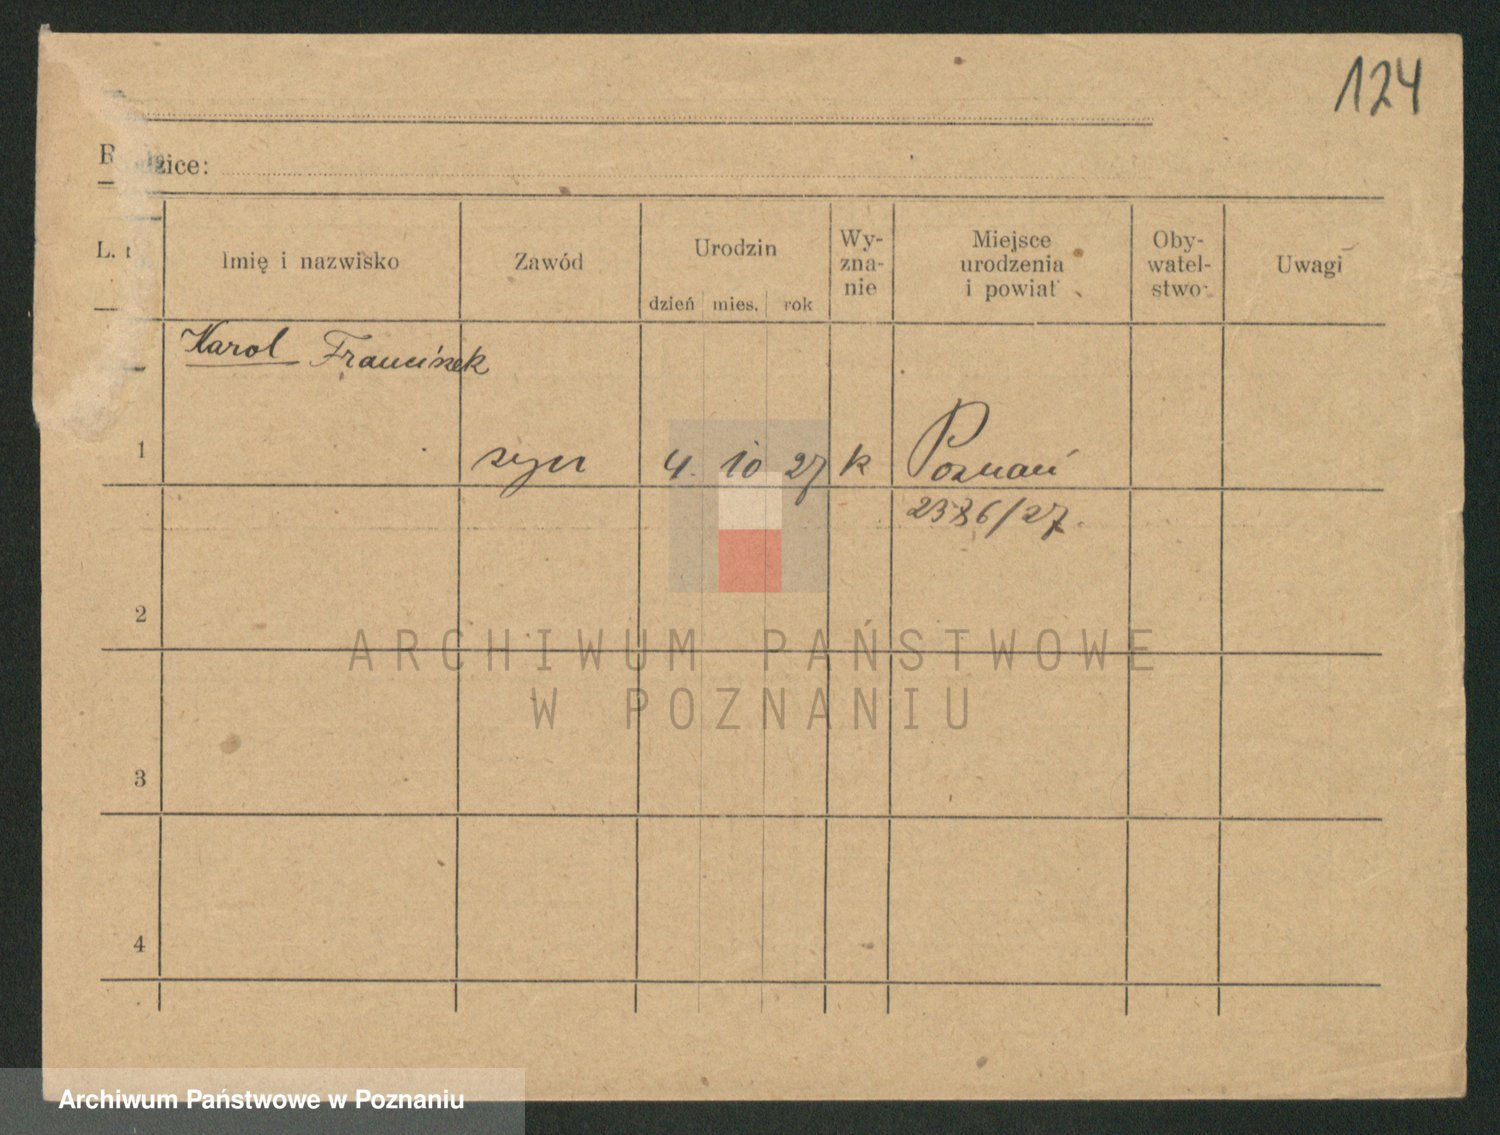 124
Rodzice:
L. p.
Imię i nazwisko
Zawód
Urodzin
dzień mies. rok
Wy-
zna-
nie
Miejsce
urodzenia
i powiat
Oby-
watel-
stwo
Uwagi
Karol Franciszek
1 syn 4. 10 27 k Poznań
2386/27.
2
3
4
ARCHIWUM PAŃSTWOWE
W POZNANIU
Archiwum Państwowe w Poznaniu